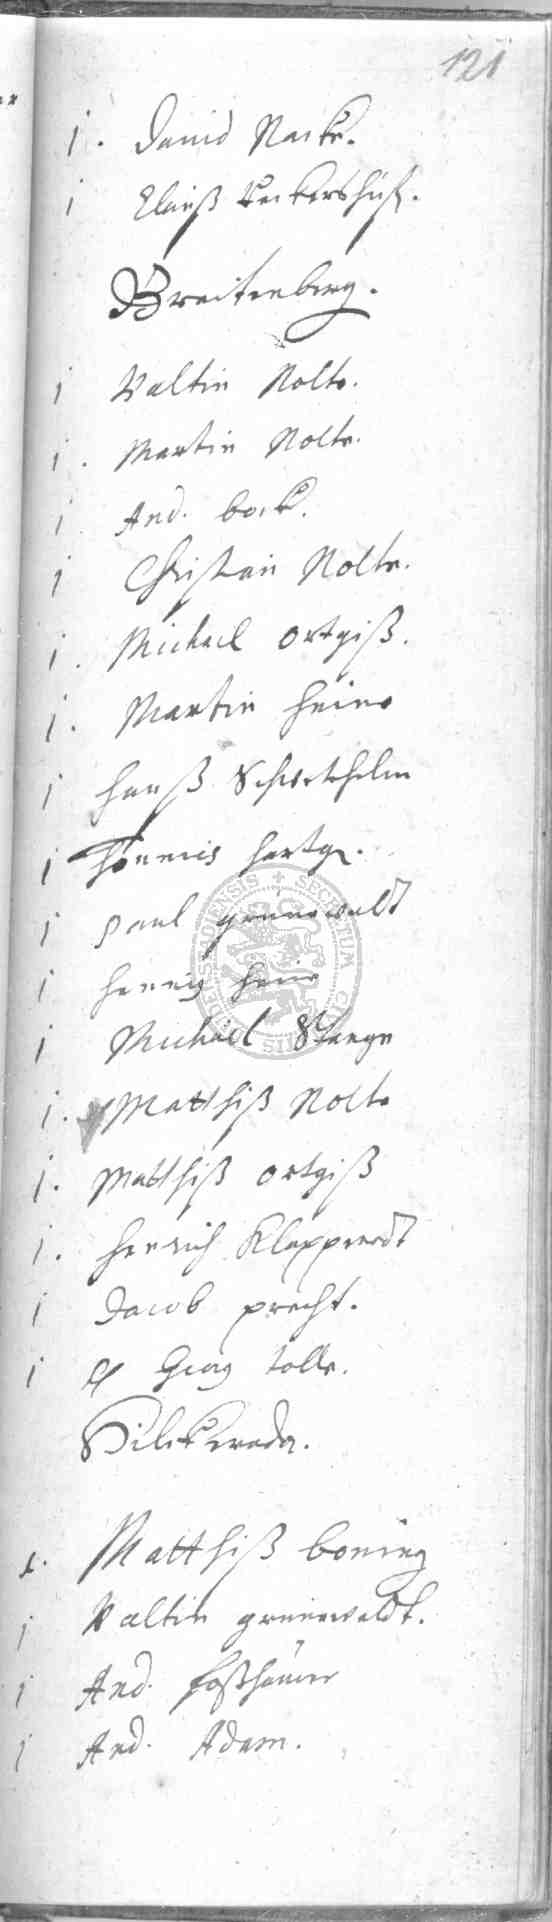 121
j. David Nacke.
j Clauß Eckershuß.
Breitenberg.
j Valtin Nolte.
j. Martin Nolte.
j And. bock.
j Christian Nolte.
j. Michael ortgiß.
j. Martin heine
j hanß Schwethelm
j Thönnies hartg.
j Paul grunewaldt
j hennig heine
j Michäel Stange
j. Matthiß Nolte
j. Matthiß ortgiß
j. henrich Klapprodt
j Jacob precht.
j Georg tolle.
Hilckerode.
j. Matthiß boning
j Valtin grunewaldt.
j And.
j And. Adam.
SECRETUM CIVITATIS DUDERSTADIENSIS